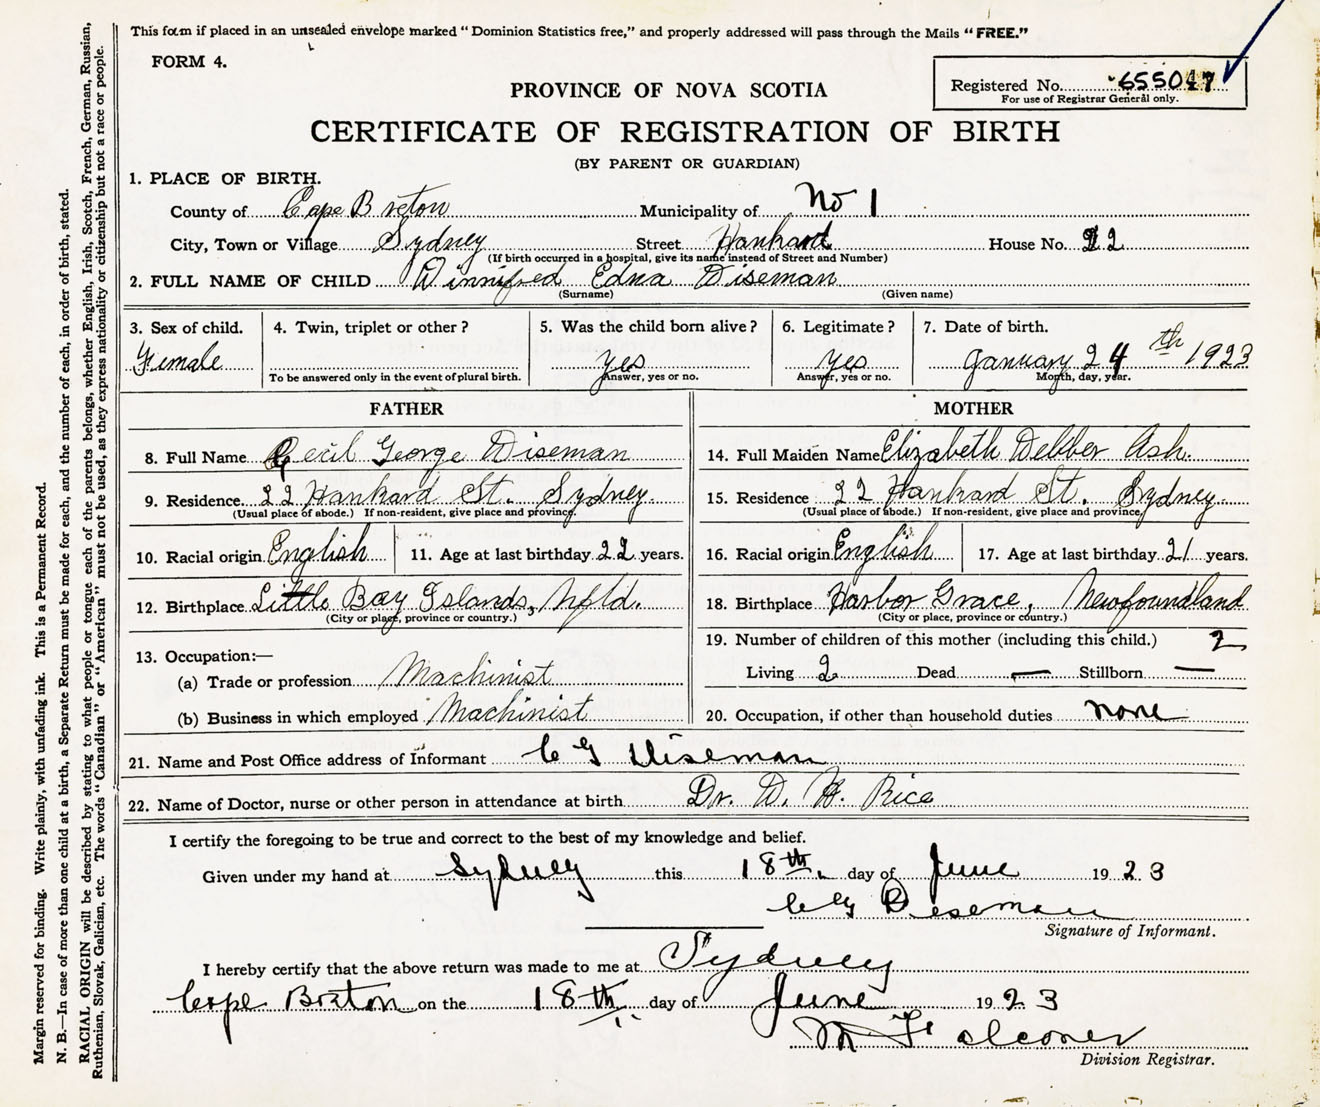 This form if placed in an unsealed envelope marked "Dominion Statistics free," and properly addressed will pass through the Mails "FREE."
FORM 4.
Registered No. 655047
For use of Registrar General only.
PROVINCE OF NOVA SCOTIA
CERTIFICATE OF REGISTRATION OF BIRTH
(BY PARENT OR GUARDIAN)
1. PLACE OF BIRTH.
County of Cape Breton Municipality of No 1
City, Town or Village Sydney Street Hankard House No. 22
(If birth occurred in a hospital, give its name instead of Street and Number)
2. FULL NAME OF CHILD Winnifred Edna Diseman
(Surname) (Given name)
3. Sex of child. 4. Twin, triplet or other? 5. Was the child born alive? 6. Legitimate? 7. Date of birth.
Female yes yes January 24th 1923
To be answered only in the event of plural birth. Answer, yes or no. Answer, yes or no. Month, day, year.
FATHER
8. Full Name Cecil George Diseman
9. Residence 22 Hankard St. Sydney.
(Usual place of abode.) If non-resident, give place and province.
10. Racial origin English 11. Age at last birthday 22 years.
12. Birthplace Little Bay Islands, Nfld.
(City or place, province or country.)
13. Occupation:—
(a) Trade or profession Machinist
(b) Business in which employed Machinist
MOTHER
14. Full Maiden Name Elizabeth Webber Ash.
15. Residence 22 Hankard St. Sydney.
(Usual place of abode.) If non-resident, give place and province.
16. Racial origin English 17. Age at last birthday 21 years.
18. Birthplace Harbor Grace, Newfoundland
(City or place, province or country.)
19. Number of children of this mother (including this child.) 2
Living 2 Dead — Stillborn —
20. Occupation, if other than household duties none
21. Name and Post Office address of Informant C G Diseman
22. Name of Doctor, nurse or other person in attendance at birth Dr. D. H. Rice
I certify the foregoing to be true and correct to the best of my knowledge and belief.
Given under my hand at Sydney this 18th. day of June 1923
C G Diseman
Signature of Informant.
I hereby certify that the above return was made to me at Sydney
Cape Breton on the 18th day of June 1923
M Falconer
Division Registrar.
Margin reserved for binding. Write plainly, with unfading ink. This is a Permanent Record.
N. B.—In case of more than one child at a birth, a Separate Return must be made for each, and the number of each, in order of birth, stated.
RACIAL ORIGIN will be described by stating to what people or tongue each of the parents belongs, whether English, Irish, Scotch, French, German, Russian,
Ruthenian, Slovak, Galician, etc. The words "Canadian" or "American" must not be used, as they express nationality or citizenship but not a race or people.